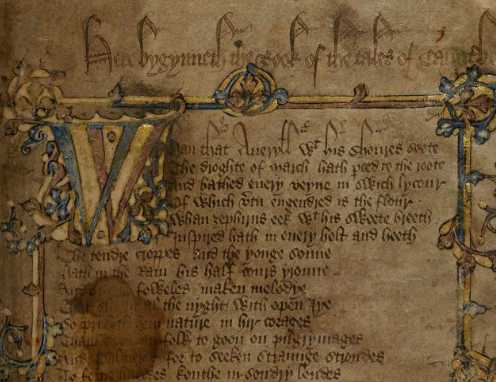 Here bygynneth the Book of the tales of Caunterbu
Whan that Aueryll wt his shoures soote
The droghte of march hath pced to the roote
And bathed euery veyne in swich lycour
Of which vtu engendred is the flour
Whan zephirus eek wt his sweete breeth
Inspired hath in euery holt and heeth
The tendre croppes And the yonge sonne
Hath in the Ram his half cours yronne
And foweles maken melodye
That al the nyght with open Iye
So priketh hem nature in hir corages
Thanne folk to goon on pilgrymages
And for to seeken straunge strondes
To ferne halwes kouthe in sondry londes